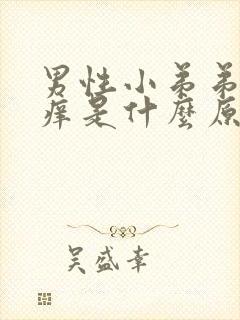 男性小弟弟
痒是什麼原
吴盛幸